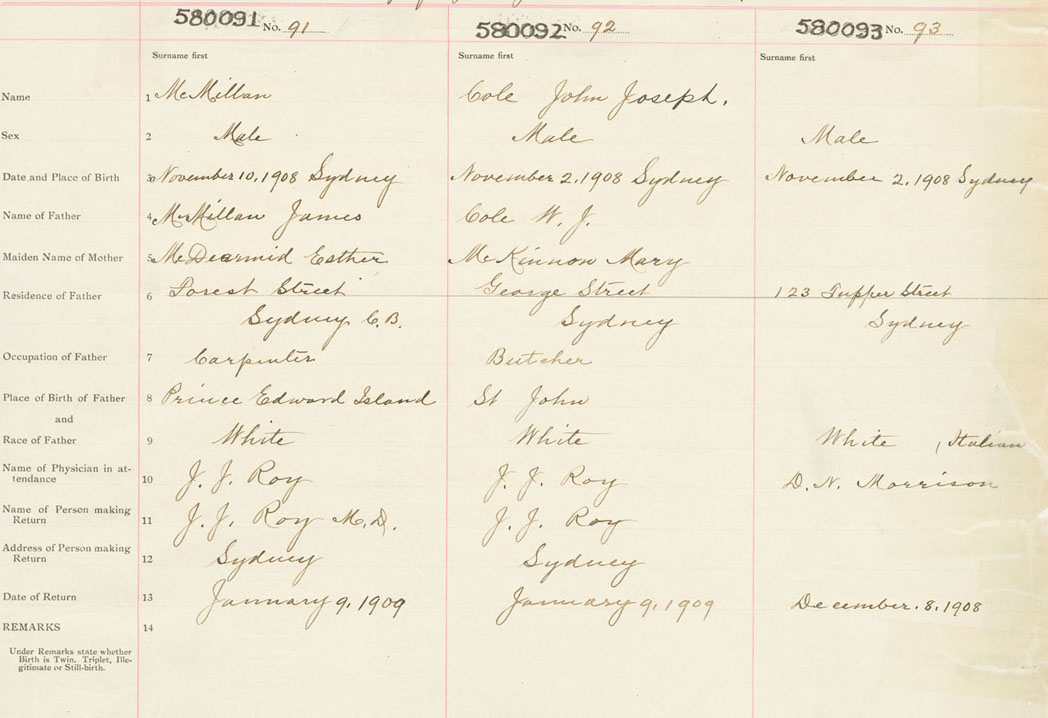 580091 No. 91 580092 No. 92 580093 No. 93
Surname first Surname first Surname first
Name 1 McMillan Cole John Joseph.
Sex 2 Male Male Male
Date and Place of Birth 3 November 10, 1908 Sydney November 2, 1908 Sydney November 2, 1908 Sydney
Name of Father 4 McMillan James Cole W. J.
Maiden Name of Mother 5 McDearmid Esther McKinnon Mary
Residence of Father 6 Forest Street George Street 123 Tupper Street
Sydney C.B. Sydney Sydney
Occupation of Father 7 Carpenter Butcher
Place of Birth of Father 8 Prince Edward Island St John
and
Race of Father 9 White White White , Italian
Name of Physician in at-
tendance 10 J. J. Roy J. J. Roy D. N. Morrison
Name of Person making
Return 11 J. J. Roy M.D. J. J. Roy
Address of Person making
Return 12 Sydney Sydney
Date of Return 13 January 9, 1909 January 9, 1909 December. 8, 1908
REMARKS 14
Under Remarks state whether
Birth is Twin, Triplet, Ille-
gitimate or Still-birth.